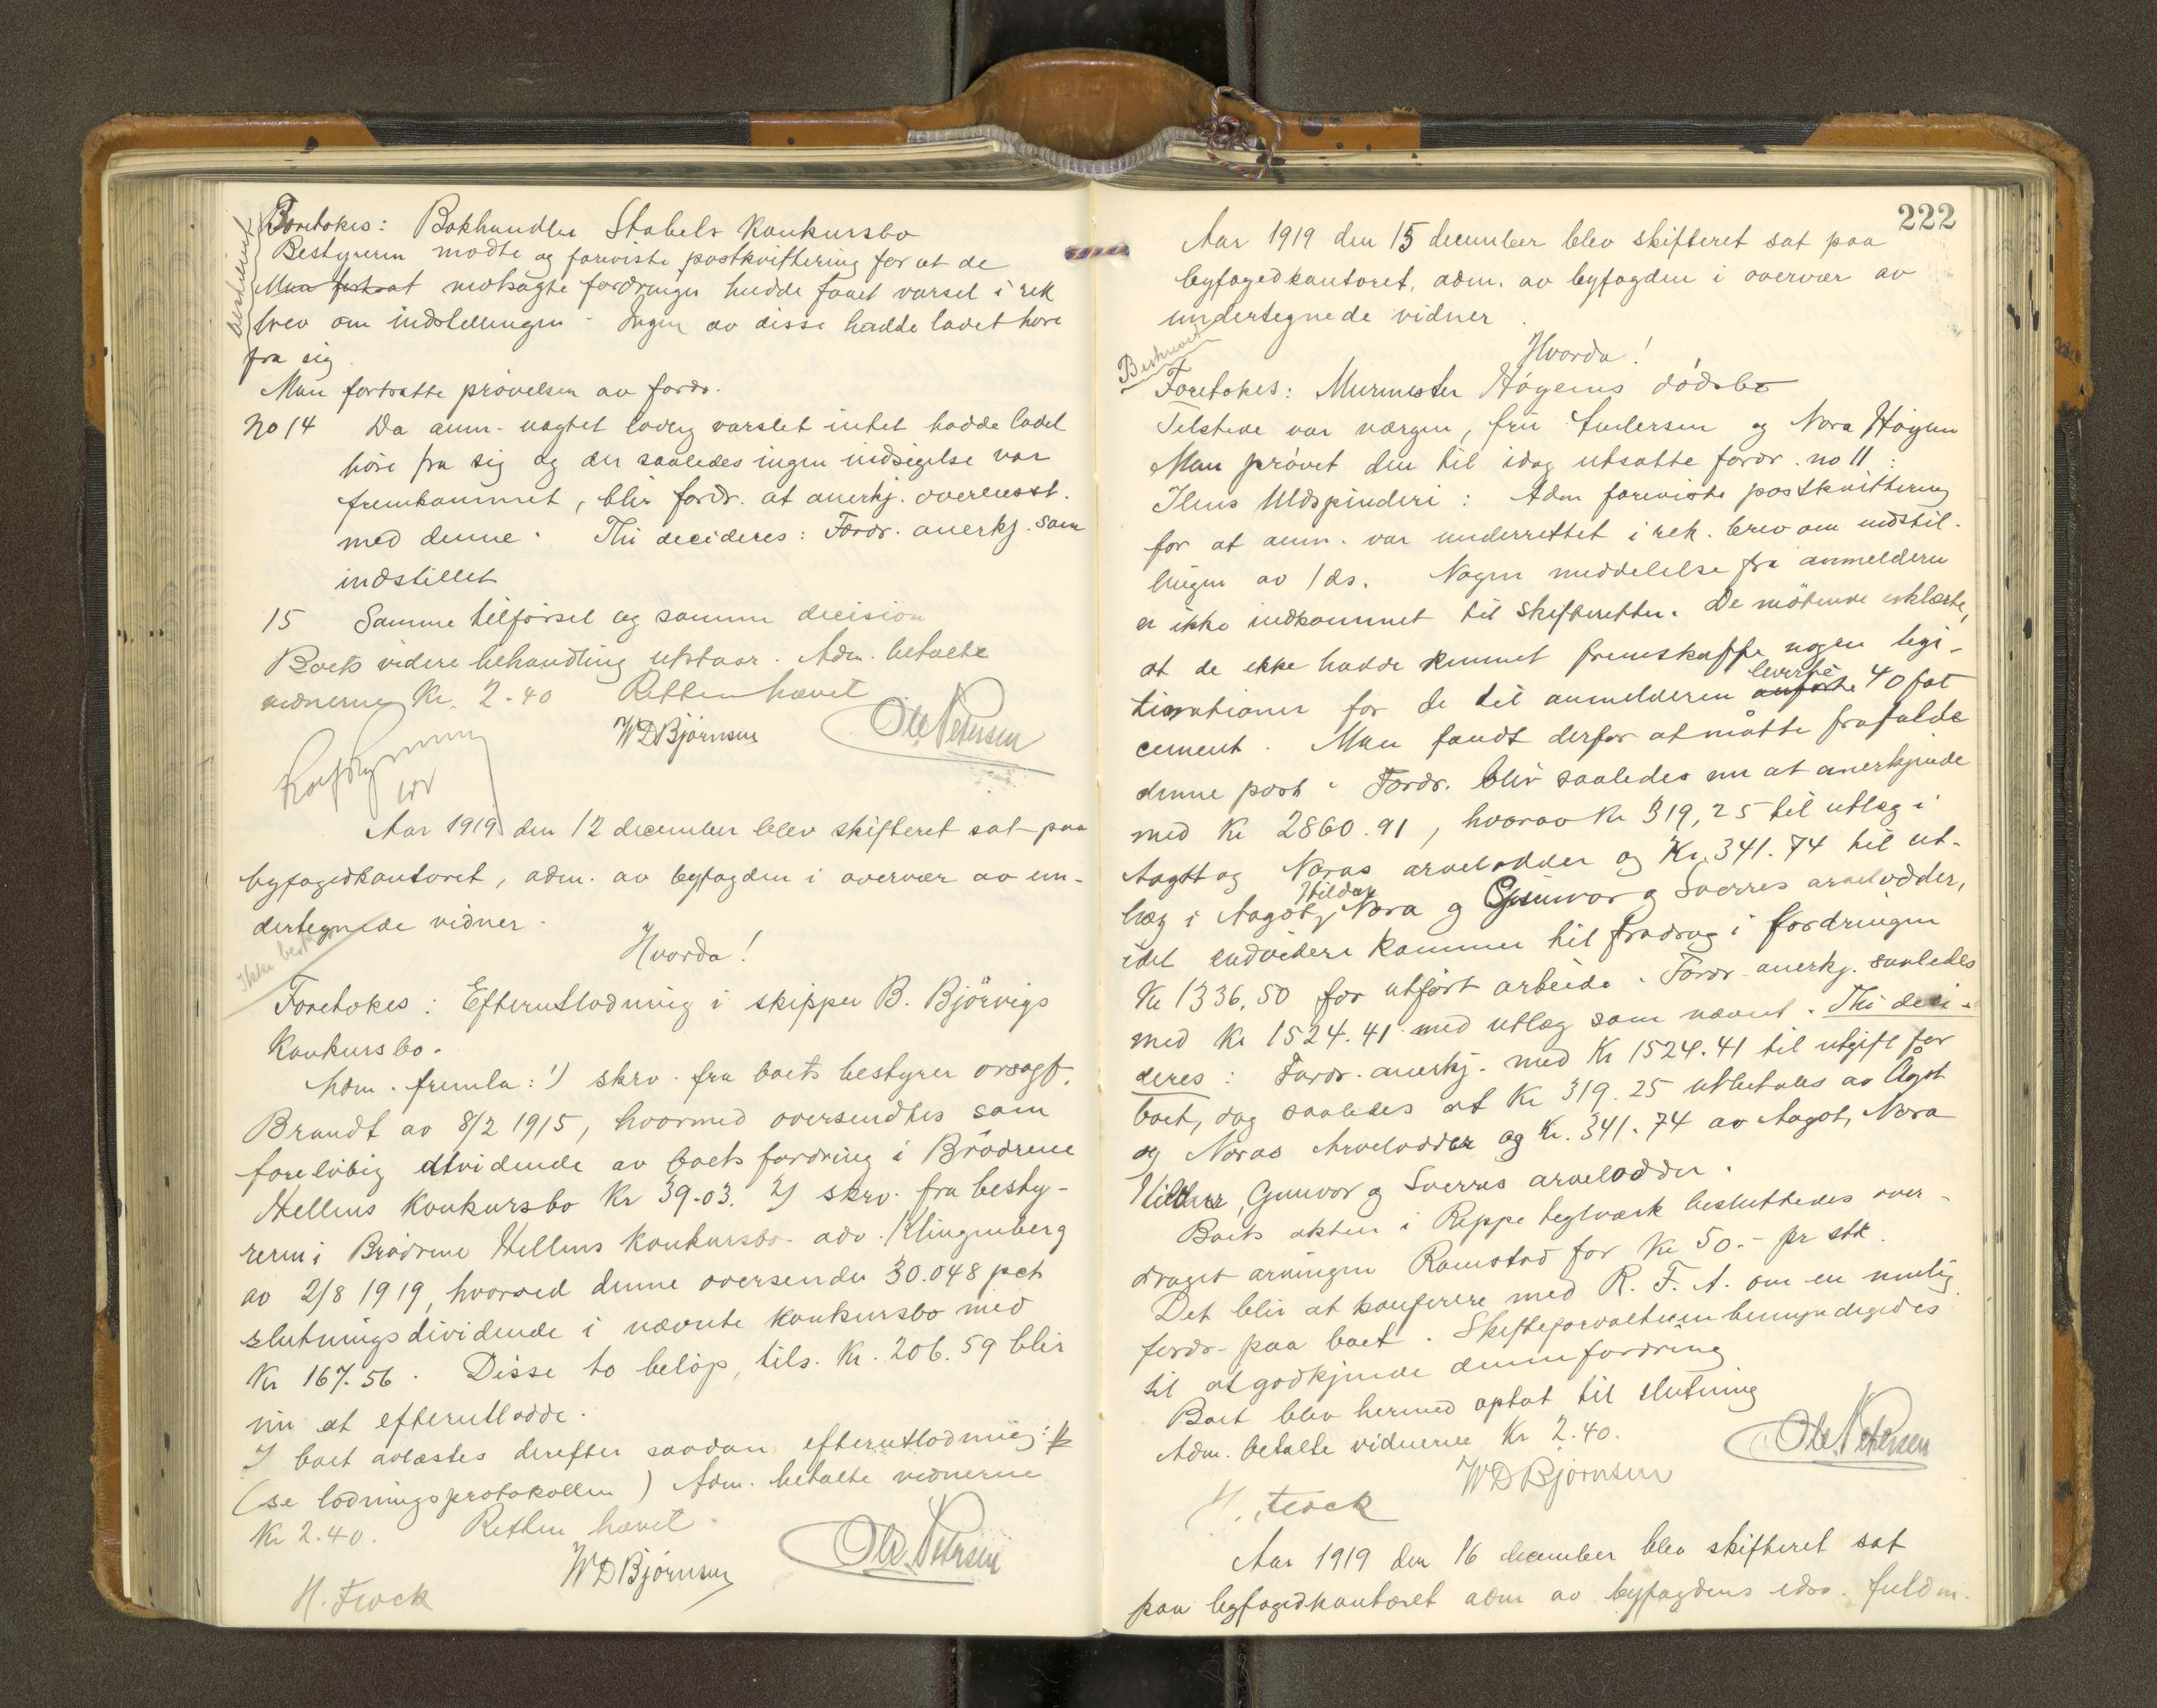 Foretokes: Bokhandler Stabels konkursbo
Beskrevet
Bestyreren mødte og foreviste postkvittering for at de
Man fortsat motsagte fordringer hadde faaet varsel i rek
brev om indstillingen - Ingen av disse hadde ladet høre
fra sig.
Man fortsatte prøvelsen av fordr.
No 14 Da anm. uagtet lovlig varslet intet hadde ladet
høre fra sig og der saaledes ingen indsigelse var
fremkommet, blir fordr. at anerkj. overensst.
med denne. Thi decideres: Fordr. anerkj. som
indstillet
15 Samme tilførsel og samme decision
Boets videre behandling utstaar. Adm. betalte
vidnerne Kr. 2.40 Retten hævet
WDBjørnsen Ole Petersen
Aar 1919 den 12 december blev skifteret sat paa
byfogedkontoret, adm. av byfogden i overvær av un-
dertegnede vidner.
Hvorda!
Ikke besk
Foretokes: Efterutlodning i skipper B. Bjørvigs
Konkursbo.
Adm. fremla: 1) skrv. fra boets bestyrer orsagf.
Brandt av 8/2 1915, hvormed oversendtes som
foreløbig dividende av boets fordring i Brødrene
Hellens konkursbo Kr 39.03. 2) skrv. fra besty-
reren i Brødrene Hellens konkursbo adv. Klingenberg
av 2/8 1919, hvorved denne oversender 30.048 pct
slutningsdividende i nævnte konkursbo med
Kr 167.56. Disse to beløp, tils. Kr. 206.59 blir
nu at efterutlodde.
I boet avlæstes derefter saadan efterutlodning:
(se lodningsprotokollen) Adm. betalte vidnerne
Kr 2.40. Retten hævet.
WDBjørnsen Ole Petersen
H. Frock
222
Aar 1919 den 15 december blev skifteret sat paa
byfogedkontoret, adm. av byfogden i overvær av
undertegnede vidner.
Hvorda!
Beskrevet
Foretokes: Murmester Høyems dødsbo
Tilstede var værgen, fru Andersen og Nora Høyem
Man prøvet den til idag utsatte fordr. no 11:
Ilens Uldspinderi: Adm foreviste postkvittering
for at anm. var underrettet i rek. brev om indstil-
lingen av 1 ds. Nogen meddelelse fra anmelderen
er ikke indkommet til skifteretten. De møtende erklærte,
at de ikke hadde kunnet fremskaffe nogen legi-
timationer for de til anmelderen anførte leverte 40 fat
cement. Man fandt derfor at maatte frafalde
denne post. Fordr. blir saaledes nu at anerkjende
med Kr 2860.91, hvorav Kr 319,25 til utlæg i
Aagot og Noras arvelodder og Kr. 341.74 til ut-
læg i Aagot, Hildur Nora og Gunvor og Sverres arvelodder,
idet endvidere kommer til fradrag i fordringen
Kr 1336,50 for utført arbeide. Fordr. anerkj. saaledes
med Kr 1524.41 med utlæg som nævnt. Thi deci-
deres: Fordr. anerkj. med Kr 1524.41 til utgift for
boet, dog saaledes at Kr 319.25 utbetales av Ågot
og Noras Arvelodder og Kr. 341.74 av Aagot, Nora
Hildur, Gunvor og Sverres arvelodder.
Boets aktier i Reppe teglværk besluttedes over-
draget arvingen Ramstad for Kr 50.- pr stk.
Det blir at konferere med R. F. A. om en mulig
fordr. paa boet. Skifteforvalteren bemyndigedes
til at godkjende denne fordring
Boet blev hermed optat til slutning
Adm. betalte vidnerne Kr 2.40.
WDBjørnsen Ole Petersen
H. Frock
Aar 1919 den 16 december blev skifteret sat
paa byfogedkontoret adm av byfogdens edsv. fuldm.